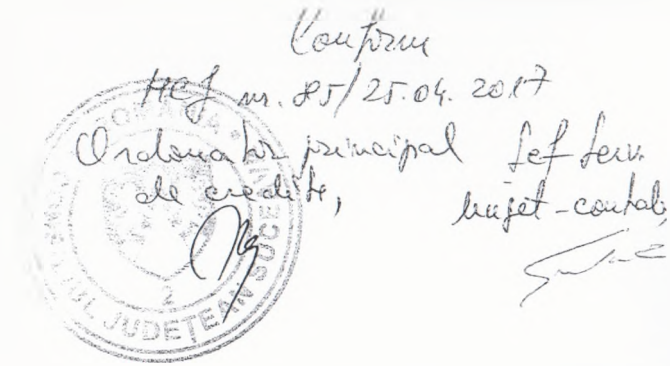 Conform
HCJ nr. 85/25.04.2017
Ordonator principal
de credite,
Șef serv.
buget-contab,
ROMÂNIA
JUDEȚEAN SUCEAVA
2